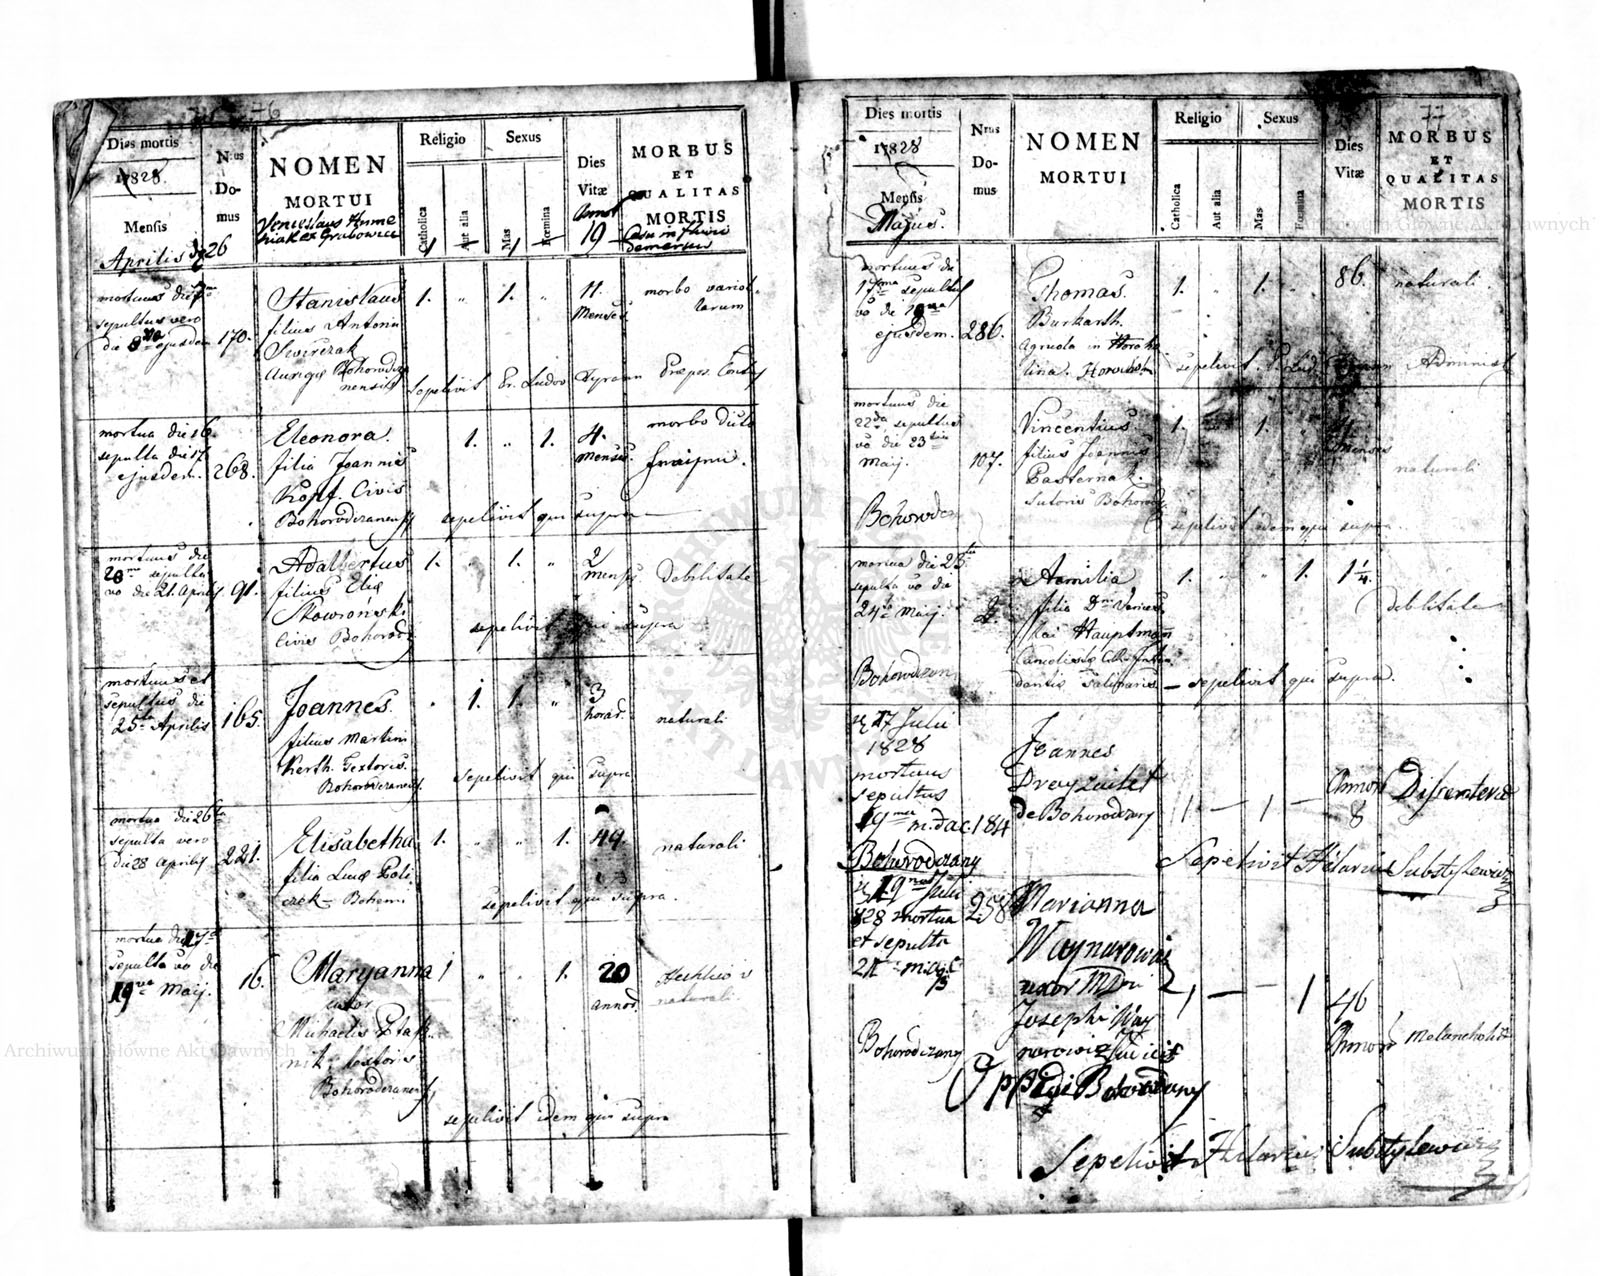 76
Dies mortis
1828.
Mensis
Aprilis
Nrus
Do-
mus
26
NOMEN
MORTUI
Venceslaus
Grabowice
Religio
Catholica
Aut alia
Sexus
Mas
Fœmina
Dies
Vitæ
Annor
19
MORBUS
ET
QUALITAS
MORTIS
Casu in
demersus
mortuus die 7ma
sepultus vero
die 8va ejusdem
170.
Stanislaus
filius Antonii
Swirczak
Aurigæ Bohorodcza
nensis
1. " 1. "
11.
Menses
morbo variol
larum
Sepelivit Fr. Ludov Præpos.
mortua die 16
sepulta die 17
ejusdem.
268.
Eleonora.
filia Joannis
Kopf. Civis
Bohorodczanensis
1. " 1.
4.
menses.
morbo
sepelivit qui supra
mortuus die
20ma sepultus
vo die 21. Aprilis
91.
Adalbertus
filius Eliæ
Skowronski
Civis Bohorodcz
1. " 1. "
2
menses
debilitate
sepelivit qui supra
mortuus et
sepultus die
25ta Aprilis
165.
Joannes.
filius Martini
Kersth. Textoris.
Bohorodczanensis
" 1. 1. "
3
horar.
naturali
sepelivit qui supra
mortua die 26ta
sepulta vero
die 28 Aprilis
221.
Elisabetha
filia Lucæ Poli
czek - Bohemi
1. " " 1.
49.
naturali
sepelivit qui supra.
mortua die 17a
sepulta vo die
19va Maij.
16.
Maryanna
uxor
Michaelis Ptasz
nik textoris
Bohorodczanensis
1 " " 1.
20
annor.
naturali.
sepelivit idem qui supra
77
Dies mortis
1828
Mensis
Majus.
Nrus
Do-
mus
NOMEN
MORTUI
Religio
Catholica
Aut alia
Sexus
Mas
Fœmina
Dies
Vitæ
MORBUS
ET
QUALITAS
MORTIS
mortuus die
17ma sepultus
vo die 19na
ejusdem.
286.
Thomas.
Burkarth.
Agricola in Horocho
lina.
1. " 1. "
86.
naturali.
sepelivit P. Lud Administ
mortuus die
22da sepultus
vo die 23tia
Maij.
Bohorodcz
107.
Vincentius.
filius Joannis
Pasternak.
Sutoris Bohorodcz
1. 1.
4
menses
naturali
sepelivit idem qui supra.
mortua die 23tia
sepulta vo die
24ta Maij.
Bohorodczan
2.
Aemilia
filia Dni Vences
lai Hauptmann
Cancelistæ
dentis Salinaris
1. " " 1.
1 1/4.
debilitate
sepelivit qui supra.
17 Julii
1828
mortuus
sepultus
19
184
Bohorodczany
Joannes
Dreyzaitel
de Bohorodczany
1 — 1 —
Annor
8
Disenteria
Sepelivit Hilarius Substylewicz
19na Julii
828 mortua
et sepulta
21
Bohorodczany
258
Marianna
Waynarowicz
uxor
Josephi Way
narowicz
Oppidi Bohorodczany
1 — 1
46
Annor
Melancholia
Sepelivit Hilarius Substylewicz
ARCHIWUM GŁÓWNE AKT DAWNYCH
Archiwum Główne Akt Dawnych
Archiwum Główne Akt Dawnych